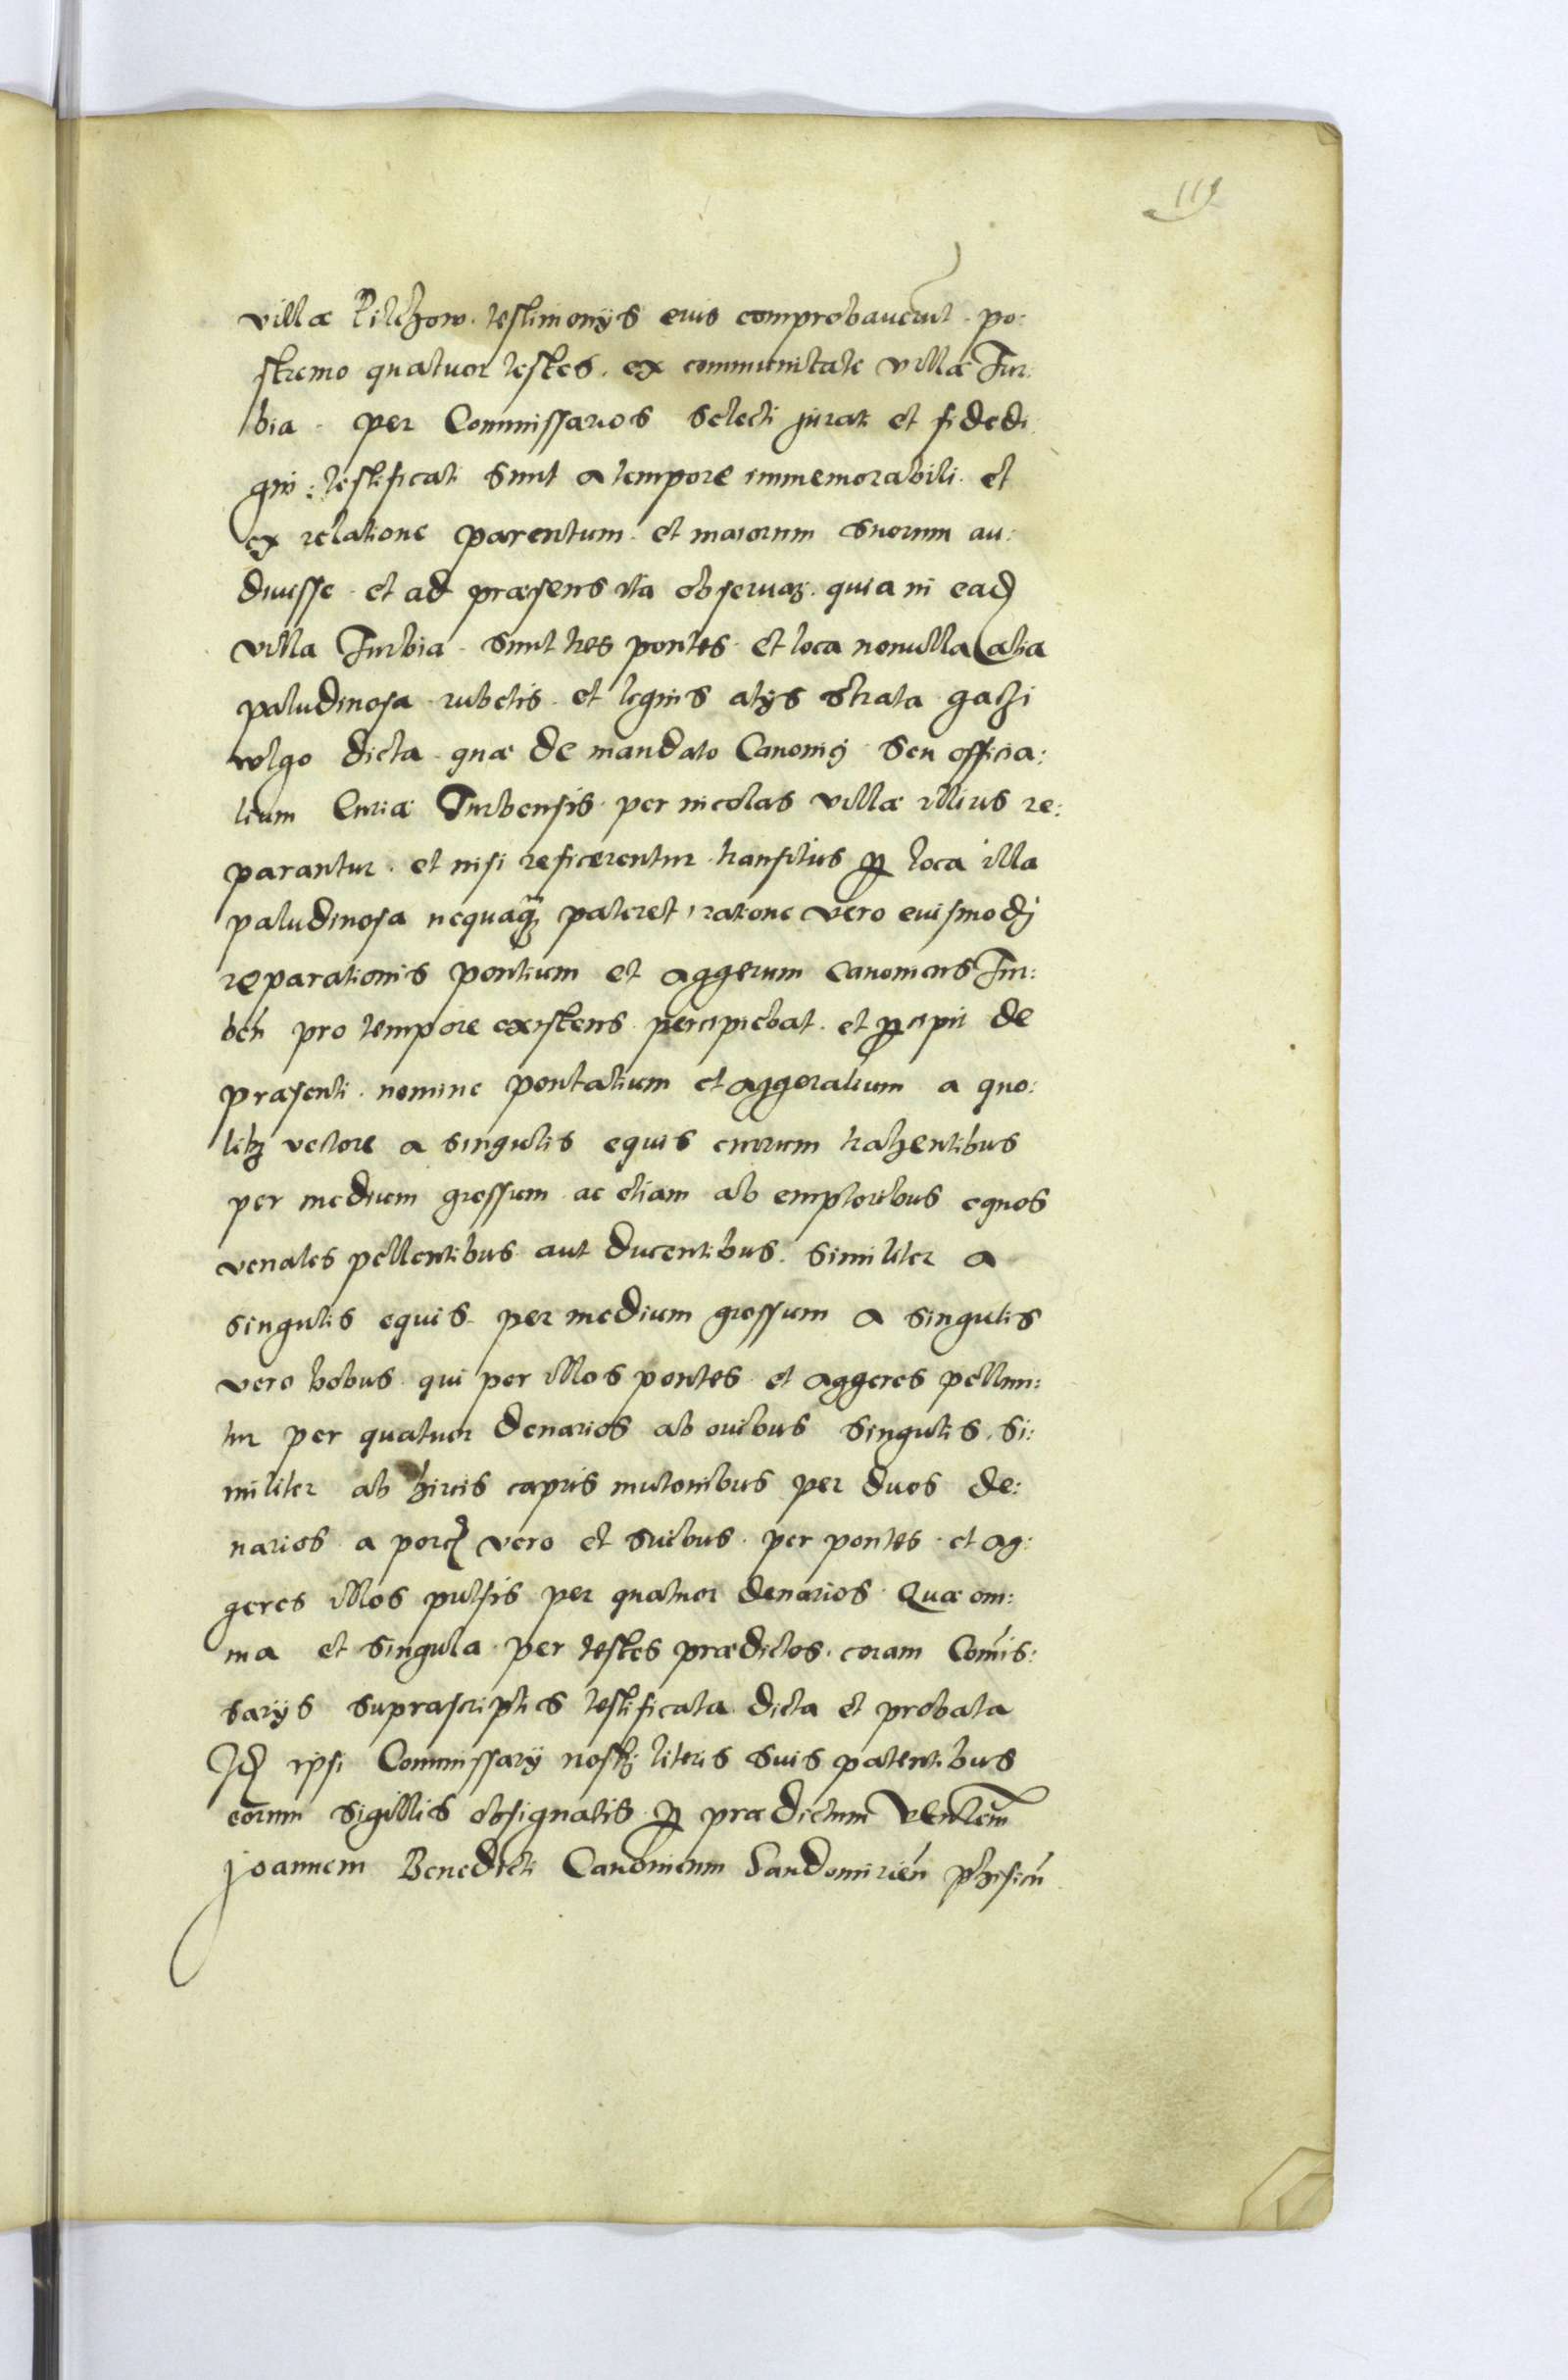 villæ Pilchow. testimonijs eius comprobauerũt. po:
stremo quatuor testes. ex communitate villæ Tur:
bia. per Commissarios selecti jurati et fidedi:
gni: testificati sunt a tempore immemorabili. et
ex relatione parentum. et maiorum suorum au:
diuisse. et ad præsens ita obseruaꝛ. quia in eadẽ
villa Turbia. sunt tres pontes. et loca nonnulla alia
paludinosa. rubetis. et lignis alijs strata. gaczi
wlgo dicta. quæ de mandato Canonicj seu officia:
lium Curiæ Turbensis. per incolas villæ illius re:
parantur. et nisi reficerentur. transitus ꝑ loca illa
paludinosa nequaꝗ̃ pateret, ratione vero euismodj
reparationis pontium et aggerum Canonicus Tur:
beñ pro tempore existens. percipiebat. et ꝑcipit de
præsenti. nomine pontalium et aggeralium a quo:
libꝫ vectore a singulis equis currum trahentibus
per medium grossum ac etiam ab emptoribus equos
venales pellentibus aut ducentibus. similiter a
singulis equis. per medium grossum a singulis
vero bobus. qui per illos pontes et aggeres pellun:
tur per quatuor denarios ab ouibus singulis. si:
militer ab hircis capris mutonibus per duos de:
narios. a porcis vero et suibus. per pontes. et ag:
geres illos pulsis per quatuor denarios. Quæ om:
nia et singula. per testes prædictos. coram Com̃is:
sarijs suprascriptis testificata. dicta et probata
Idẽ ipsi Commissarij nostrj literis suis patentibus
eorum sigillis obsignatis. ꝑ prædictum Veñlem
Joannem Benedicti Canonicum Sandomirieñ phisicũ